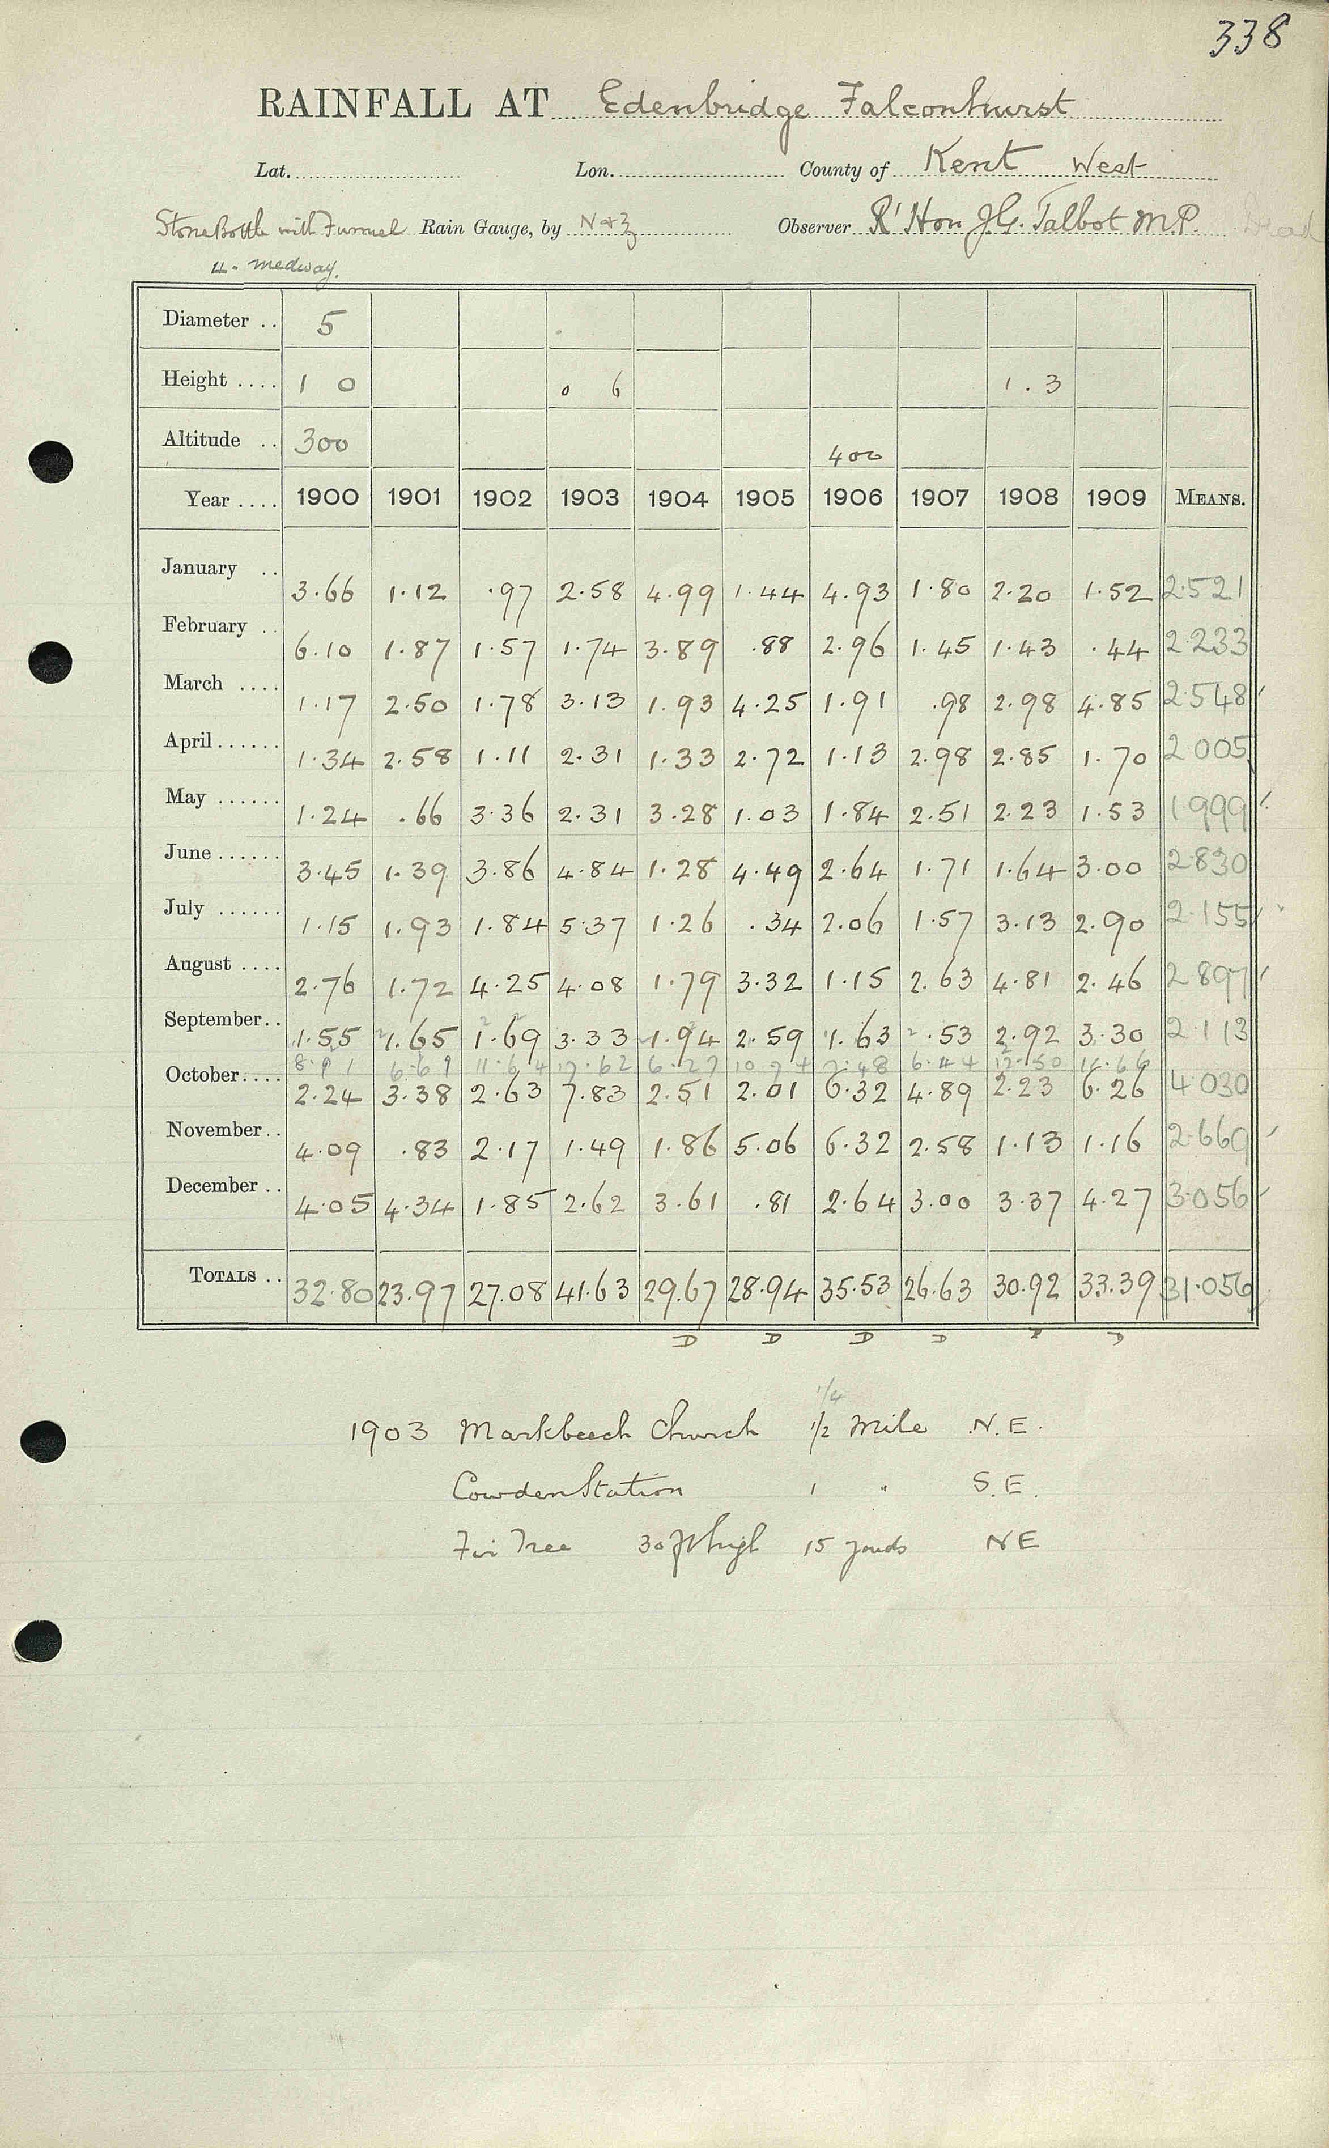 338
RAINFALL AT Edenbridge Falconhurst
Lat. Lon. County of Kent West
Stone Bottle with Funnel Rain Gauge, by N & Z Observer Rt Hon J.G. Talbot M.P. Dead
u. medway.
Diameter .. 5
Height .... 1 0 0 6 1.3
Altitude .. 300 400
Year .... 1900 1901 1902 1903 1904 1905 1906 1907 1908 1909 MEANS.
January .. 3.66 1.12 .97 2.58 4.99 1.44 4.93 1.80 2.20 1.52 2.521
February .. 6.10 1.87 1.57 1.74 3.89 .88 2.96 1.45 1.43 .44 2.233
March .... 1.17 2.50 1.78 3.13 1.93 4.25 1.91 .98 2.98 4.85 2.548
April ...... 1.34 2.58 1.11 2.31 1.33 2.72 1.13 2.98 2.85 1.70 2.005
May ...... 1.24 .66 3.36 2.31 3.28 1.03 1.84 2.51 2.23 1.53 1.999
June ...... 3.45 1.39 3.86 4.84 1.28 4.49 2.64 1.71 1.64 3.00 2.830
July ...... 1.15 1.93 1.84 5.37 1.26 .34 2.06 1.57 3.13 2.90 2.155
August .... 2.76 1.72 4.25 4.08 1.79 3.32 1.15 2.63 4.81 2.46 2.897
September .. 1.55 1.65 1.69 3.33 1.94 2.59 1.63 .53 2.92 3.30 2.113
October .... 2.24 3.38 2.63 7.83 2.51 2.01 6.32 4.89 2.23 6.26 4.030
November .. 4.09 .83 2.17 1.49 1.86 5.06 6.32 2.58 1.13 1.16 2.669
December .. 4.05 4.34 1.85 2.62 3.61 .81 2.64 3.00 3.37 4.27 3.056
TOTALS .. 32.80 23.97 27.08 41.63 29.67 28.94 35.53 26.63 30.92 33.39 31.056
D D D D D D
1/4
1903 Markbeech Church 1/2 Mile N.E.
Cowden Station 1 " S.E.
Fir Tree 30 ft high 15 yards NE